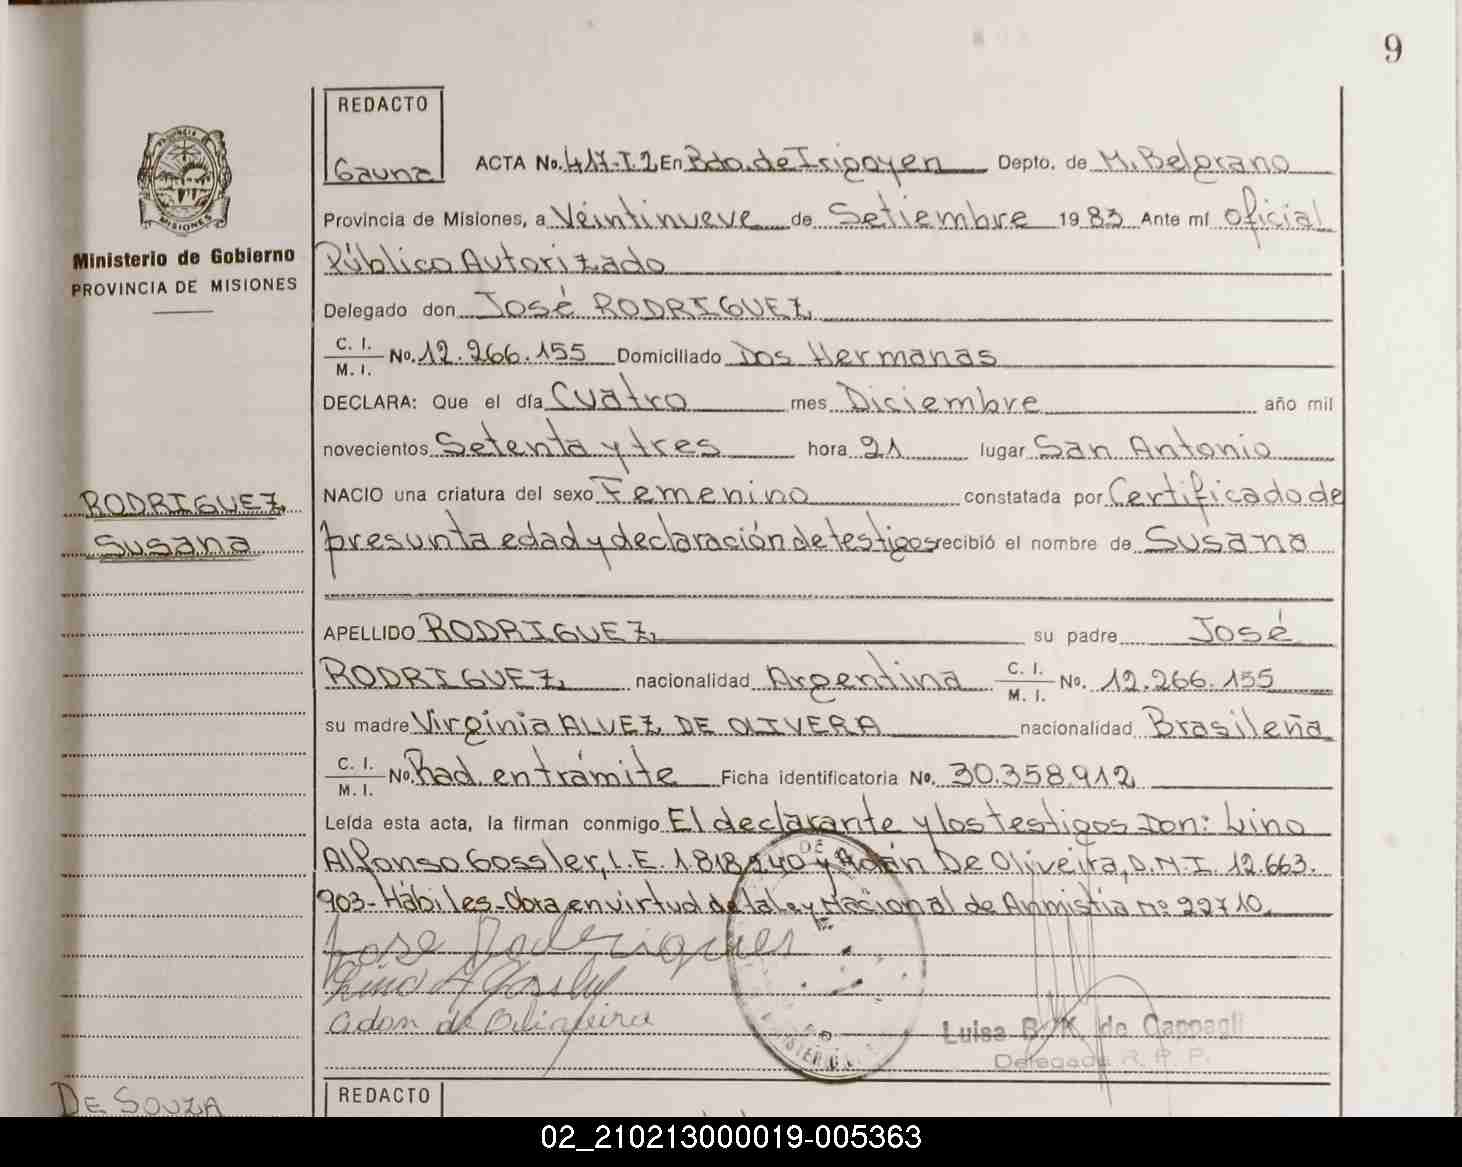 9
REDACTO
Gauna
ACTA No. 417-T.2 En Bdo. de Irigoyen Depto. de M. Belgrano
Provincia de Misiones, a Veintinueve de Setiembre 19 83 Ante mí oficial
Público Autorizado
Delegado don José RODRIGUEZ
C. I.
M. I. No. 12.266.155 Domiciliado Dos Hermanas
DECLARA: Que el día Cuatro mes Diciembre año mil
novecientos Setenta y tres hora 21 lugar San Antonio
NACIO una criatura del sexo Femenino constatada por Certificado de
presunta edad y declaración de testigos recibió el nombre de Susana
APELLIDO RODRIGUEZ su padre José
RODRIGUEZ nacionalidad Argentina C. I.
M. I. No. 12.266.155
su madre Virginia ALVEZ DE OLIVERA nacionalidad Brasileña
C. I.
M. I. No. Rad. en trámite Ficha identificatoria No. 30.358.912
Leída esta acta, la firman conmigo El declarante y los testigos Don: Lino
Alfonso Gossler, L.E. 1.818.240 y Adán De Oliveira, D.N.I. 12.663.
903- Hábiles- Obra en virtud de la Ley Nacional de Anmistia Nº 22710
Jose Rodrigques
Lino A Gossler
adan de Oliveira
Luisa B. K. de Cappagli
Delegada R. P. P.
PROVINCIA DE
MISIONES
Ministerio de Gobierno
PROVINCIA DE MISIONES
RODRIGUEZ
Susana
DE SOUZA
REDACTO
02_210213000019-005363